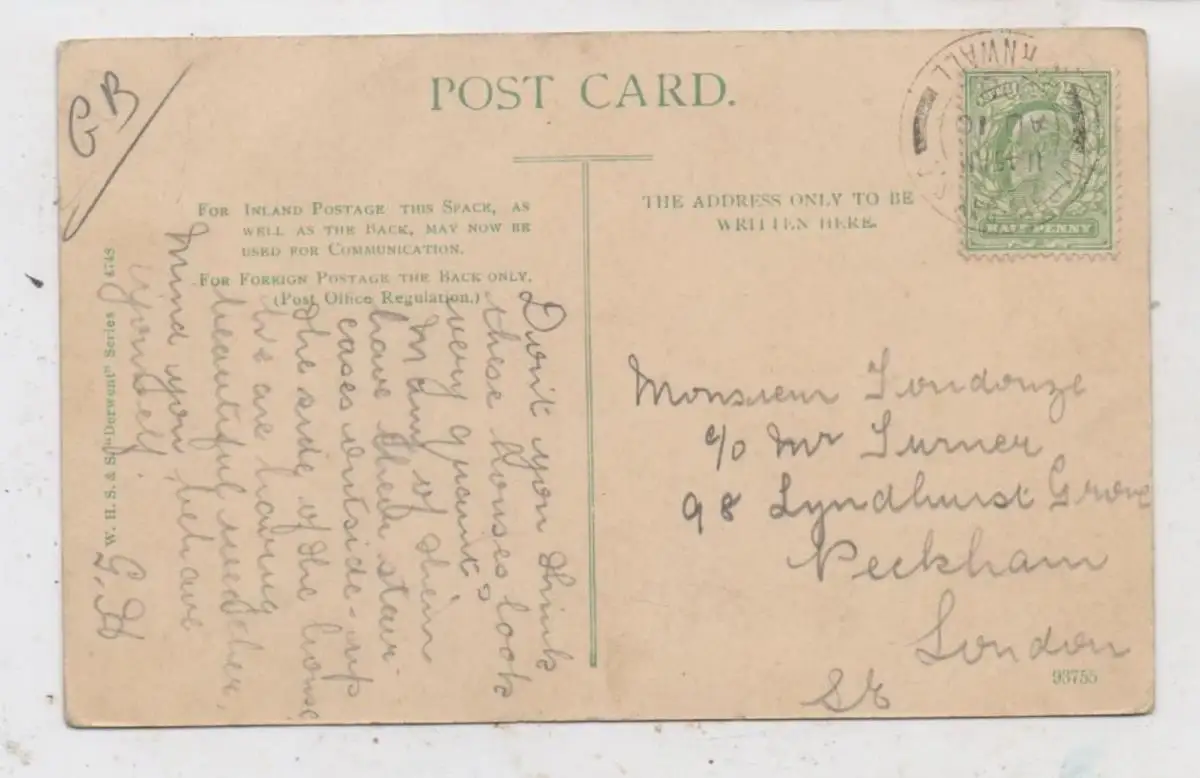 GB
POST CARD.
FOR INLAND POSTAGE THIS SPACE, AS
WELL AS THE BACK, MAY NOW BE
USED FOR COMMUNICATION.
FOR FOREIGN POSTAGE THE BACK ONLY.
(Post Office Regulation.)
THE ADDRESS ONLY TO BE
WRITTEN HERE.
HALF PENNY
W. H. S. & S. "Derwent" Series 4748
Don't you think
these houses look
very quaint?
Many of them
have their stair-
cases outside - up
the side of the house
We are having
beautiful weather,
Mind you behave
yourself.
G. H
Monsieur
c/o Mr Turner
98 Lyndhurst Grove
Peckham
London
SE
93755